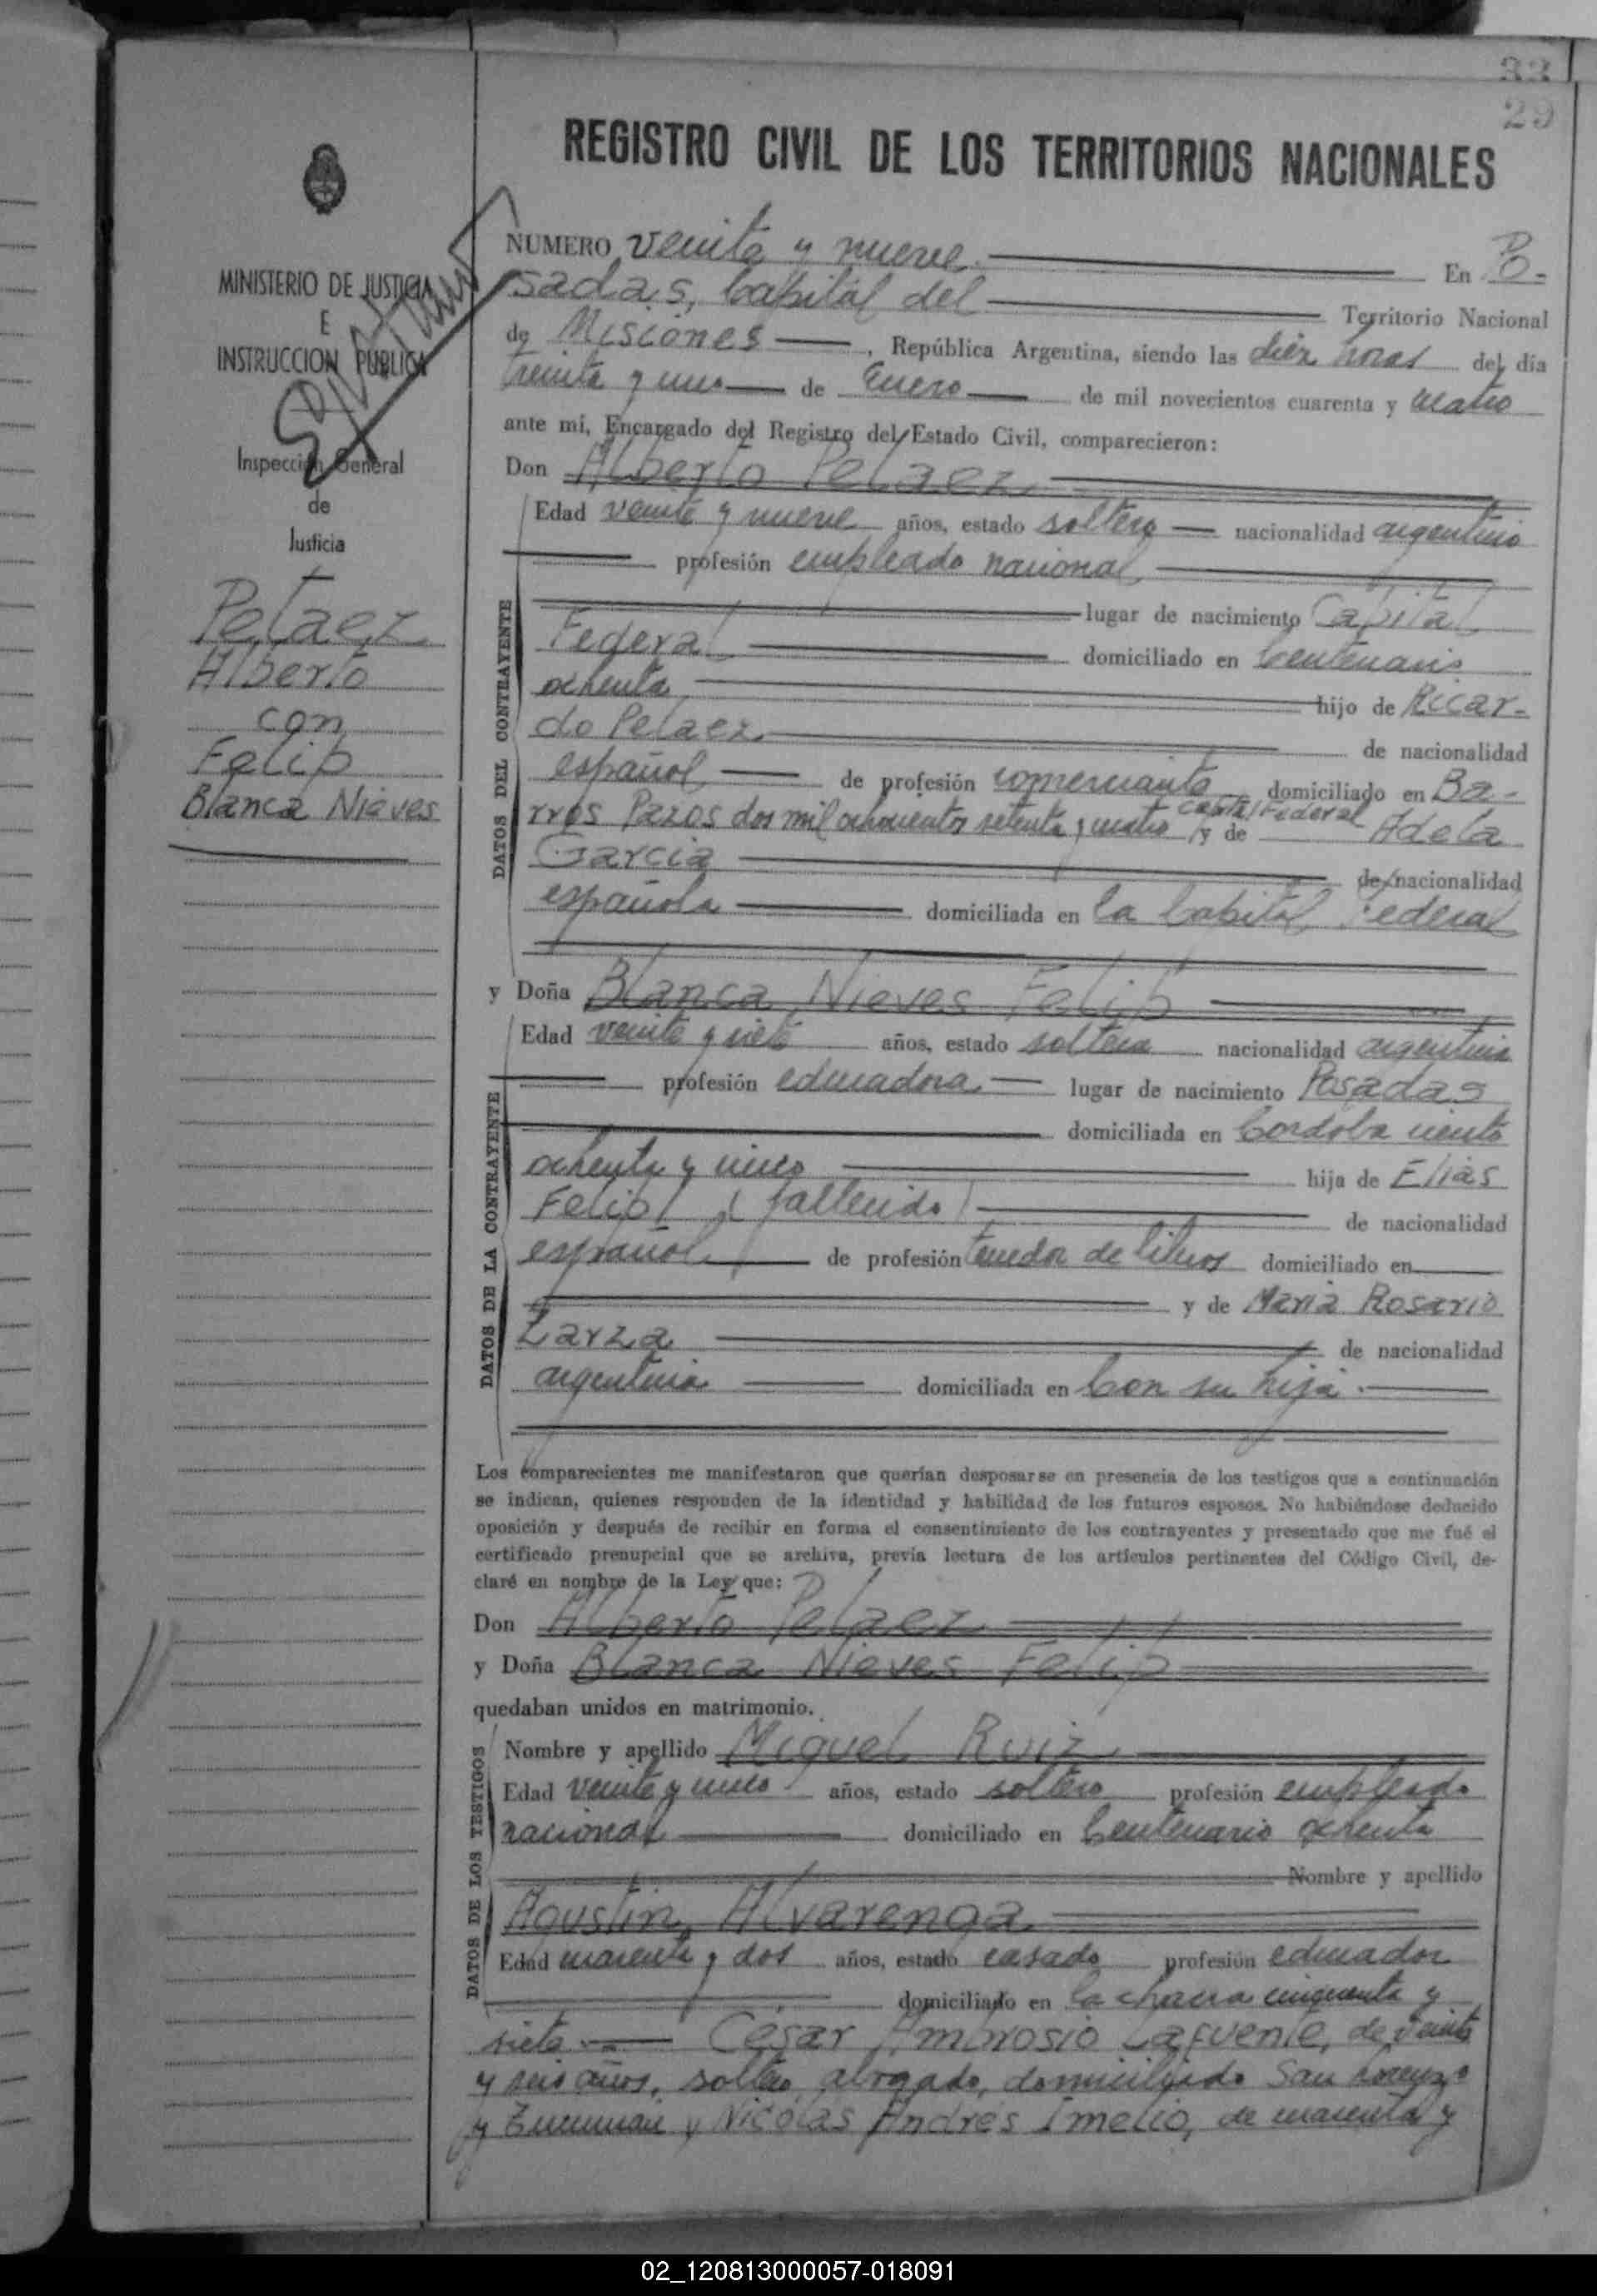 33
29
REGISTRO CIVIL DE LOS TERRITORIOS NACIONALES
MINISTERIO DE JUSTICIA
E
INSTRUCCION PUBLICA
Inspección General
de
Justicia
Pelaez
Alberto
con
Felip
Blanca Nieves
NUMERO veinte y nueve En Po-
sadas, Capital del Territorio Nacional
de Misiones, República Argentina, siendo las diez horas del día
treinta y uno de Enero de mil novecientos cuarenta y cuatro
ante mi, Encargado del Registro del Estado Civil, comparecieron:
Don Alberto Pelaez
DATOS DEL CONTRAYENTE
Edad veinte y nueve años, estado soltero nacionalidad argentino
profesión empleado nacional
lugar de nacimiento Capital
Federal domiciliado en Centenario
ochenta hijo de Ricar-
do Pelaez de nacionalidad
español de profesión comerciante domiciliado en Ba-
rros Pazos dos mil ochocientos setenta y cuatro Capital Federal y de Adela
Garcia de nacionalidad
española domiciliada en la Capital Federal
y Doña Blanca Nieves Felip
DATOS DE LA CONTRAYENTE
Edad veinte y siete años, estado soltera nacionalidad argentina
profesión educadora lugar de nacimiento Posadas
domiciliada en Cordoba ciento
ochenta y cinco hija de Elias
Felip (fallecido) de nacionalidad
español de profesión tenedor de libros domiciliado en
y de Maria Rosario
Zarza de nacionalidad
argentina domiciliada en Con su hija.
Los comparecientes me manifestaron que querían desposarse en presencia de los testigos que a continuación
se indican, quienes responden de la identidad y habilidad de los futuros esposos. No habiéndose deducido
oposición y después de recibir en forma el consentimiento de los contrayentes y presentado que me fué el
certificado prenupcial que se archiva, previa lectura de los artículos pertinentes del Código Civil, de-
claré en nombre de la Ley que:
Don Alberto Pelaez
y Doña Blanca Nieves Felip
quedaban unidos en matrimonio.
DATOS DE LOS TESTIGOS
Nombre y apellido Miguel Ruiz
Edad veinte y cinco años, estado soltero profesión empleado
nacional domiciliado en Centenario ochenta
Nombre y apellido
Agustin Alvarenga
Edad cuarenta y dos años, estado casado profesión educador
domiciliado en la chacra cincuenta y
siete. César Ambrosio Lafuente, de veinte
y seis años, soltero, abogado, domiciliado San Lorenzo
y Tucuman y Nicolas Andrés Imelio, de cuarenta y
02_120813000057-018091